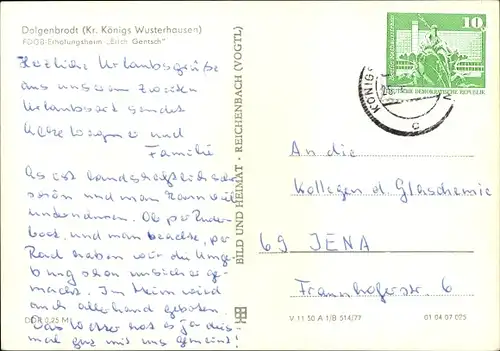 Dolgenbrodt (Kr. Königs Wusterhausen)
FDGB-Erholungsheim „Erich Gentsch"
Herzliche Urlaubsgrüße
aus unserem zweiten
Urlaubsort sendet
und
Familie
Es ist landschaftlich sehr
schön und man kann viel
unternehmen. Ob per Ruder-
boot, und man beachte, per
Rad haben wir die Umge-
bung schon unsicher ge-
macht. Im Heim wird
auch allerhand geboten.
Das Wetter hat es ja dies-
mal gut mit uns gemeint!
DDR 0,25 M
BILD UND HEIMAT · REICHENBACH (VOGTL)
10
DEUTSCHE DEMOKRATISCHE REPUBLIK
KÖNIGS
c
An die
Kollegen d. Glaschemie
69 JENA
Fraunhoferstr. 6
V 11 50 A 1/B 514/77
01 04 07 025